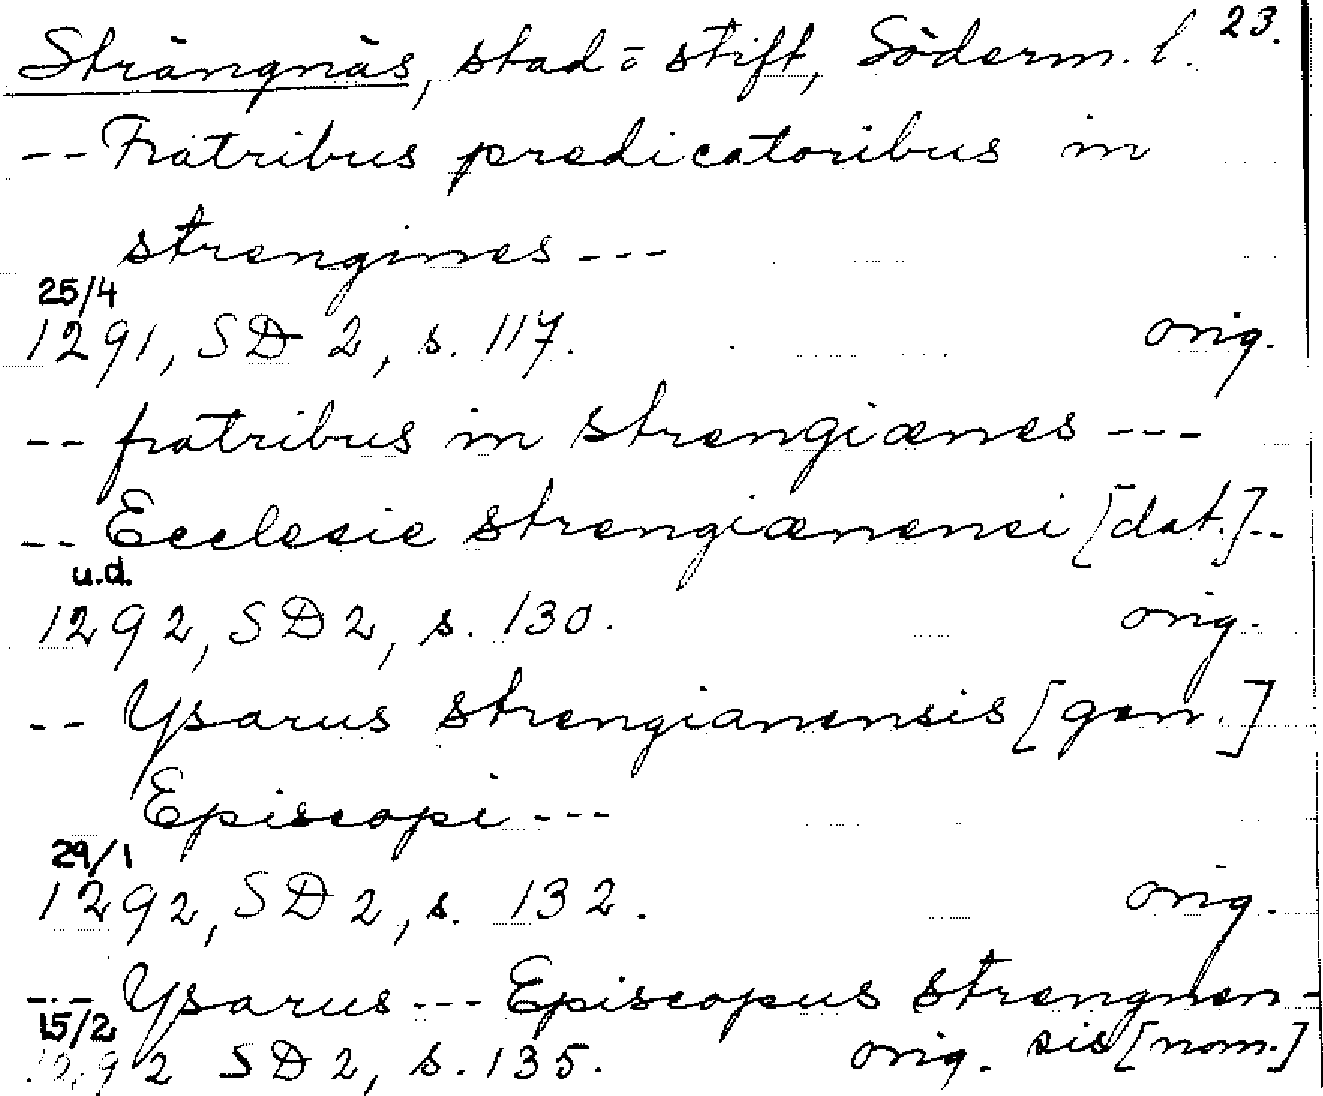 Strängnäs, stad o stift, Söderm. l. 23.
-- Fratribus predicatoribus in
strengines ---
25/4
1291, SD 2, s. 117. orig.
-- fratribus in strengiænes ---
-- Ecclesie strengiænensi [dat.]--
u.d.
1292, SD 2, s. 130. orig.
-- Ysarus strengianensis [gen.]
Episcopi ---
29/1
1292, SD 2, s. 132. orig.
-- Ysarus --- Episcopus strengnen-
sis [nom.]
15/2
1292 SD 2, s. 135. orig.